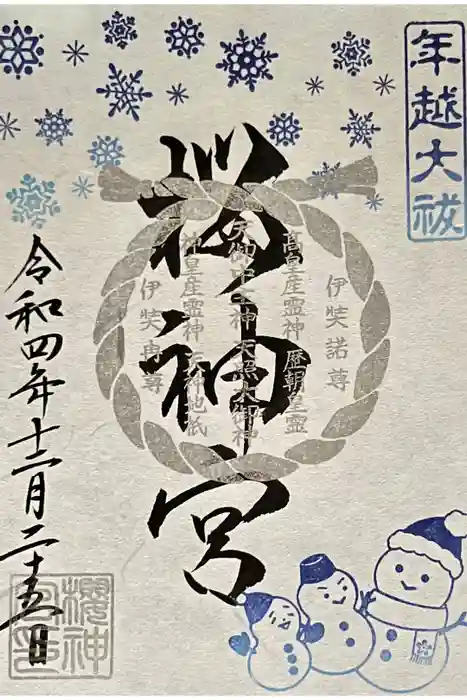 年越大祓
櫻神宮
伊奘諾尊
高皇産霊神 歴朝皇霊
天御中主神 天照大御神
神皇産霊神 天神地祇
伊奘冉尊
令和四年十二月二十五日
櫻神宮印